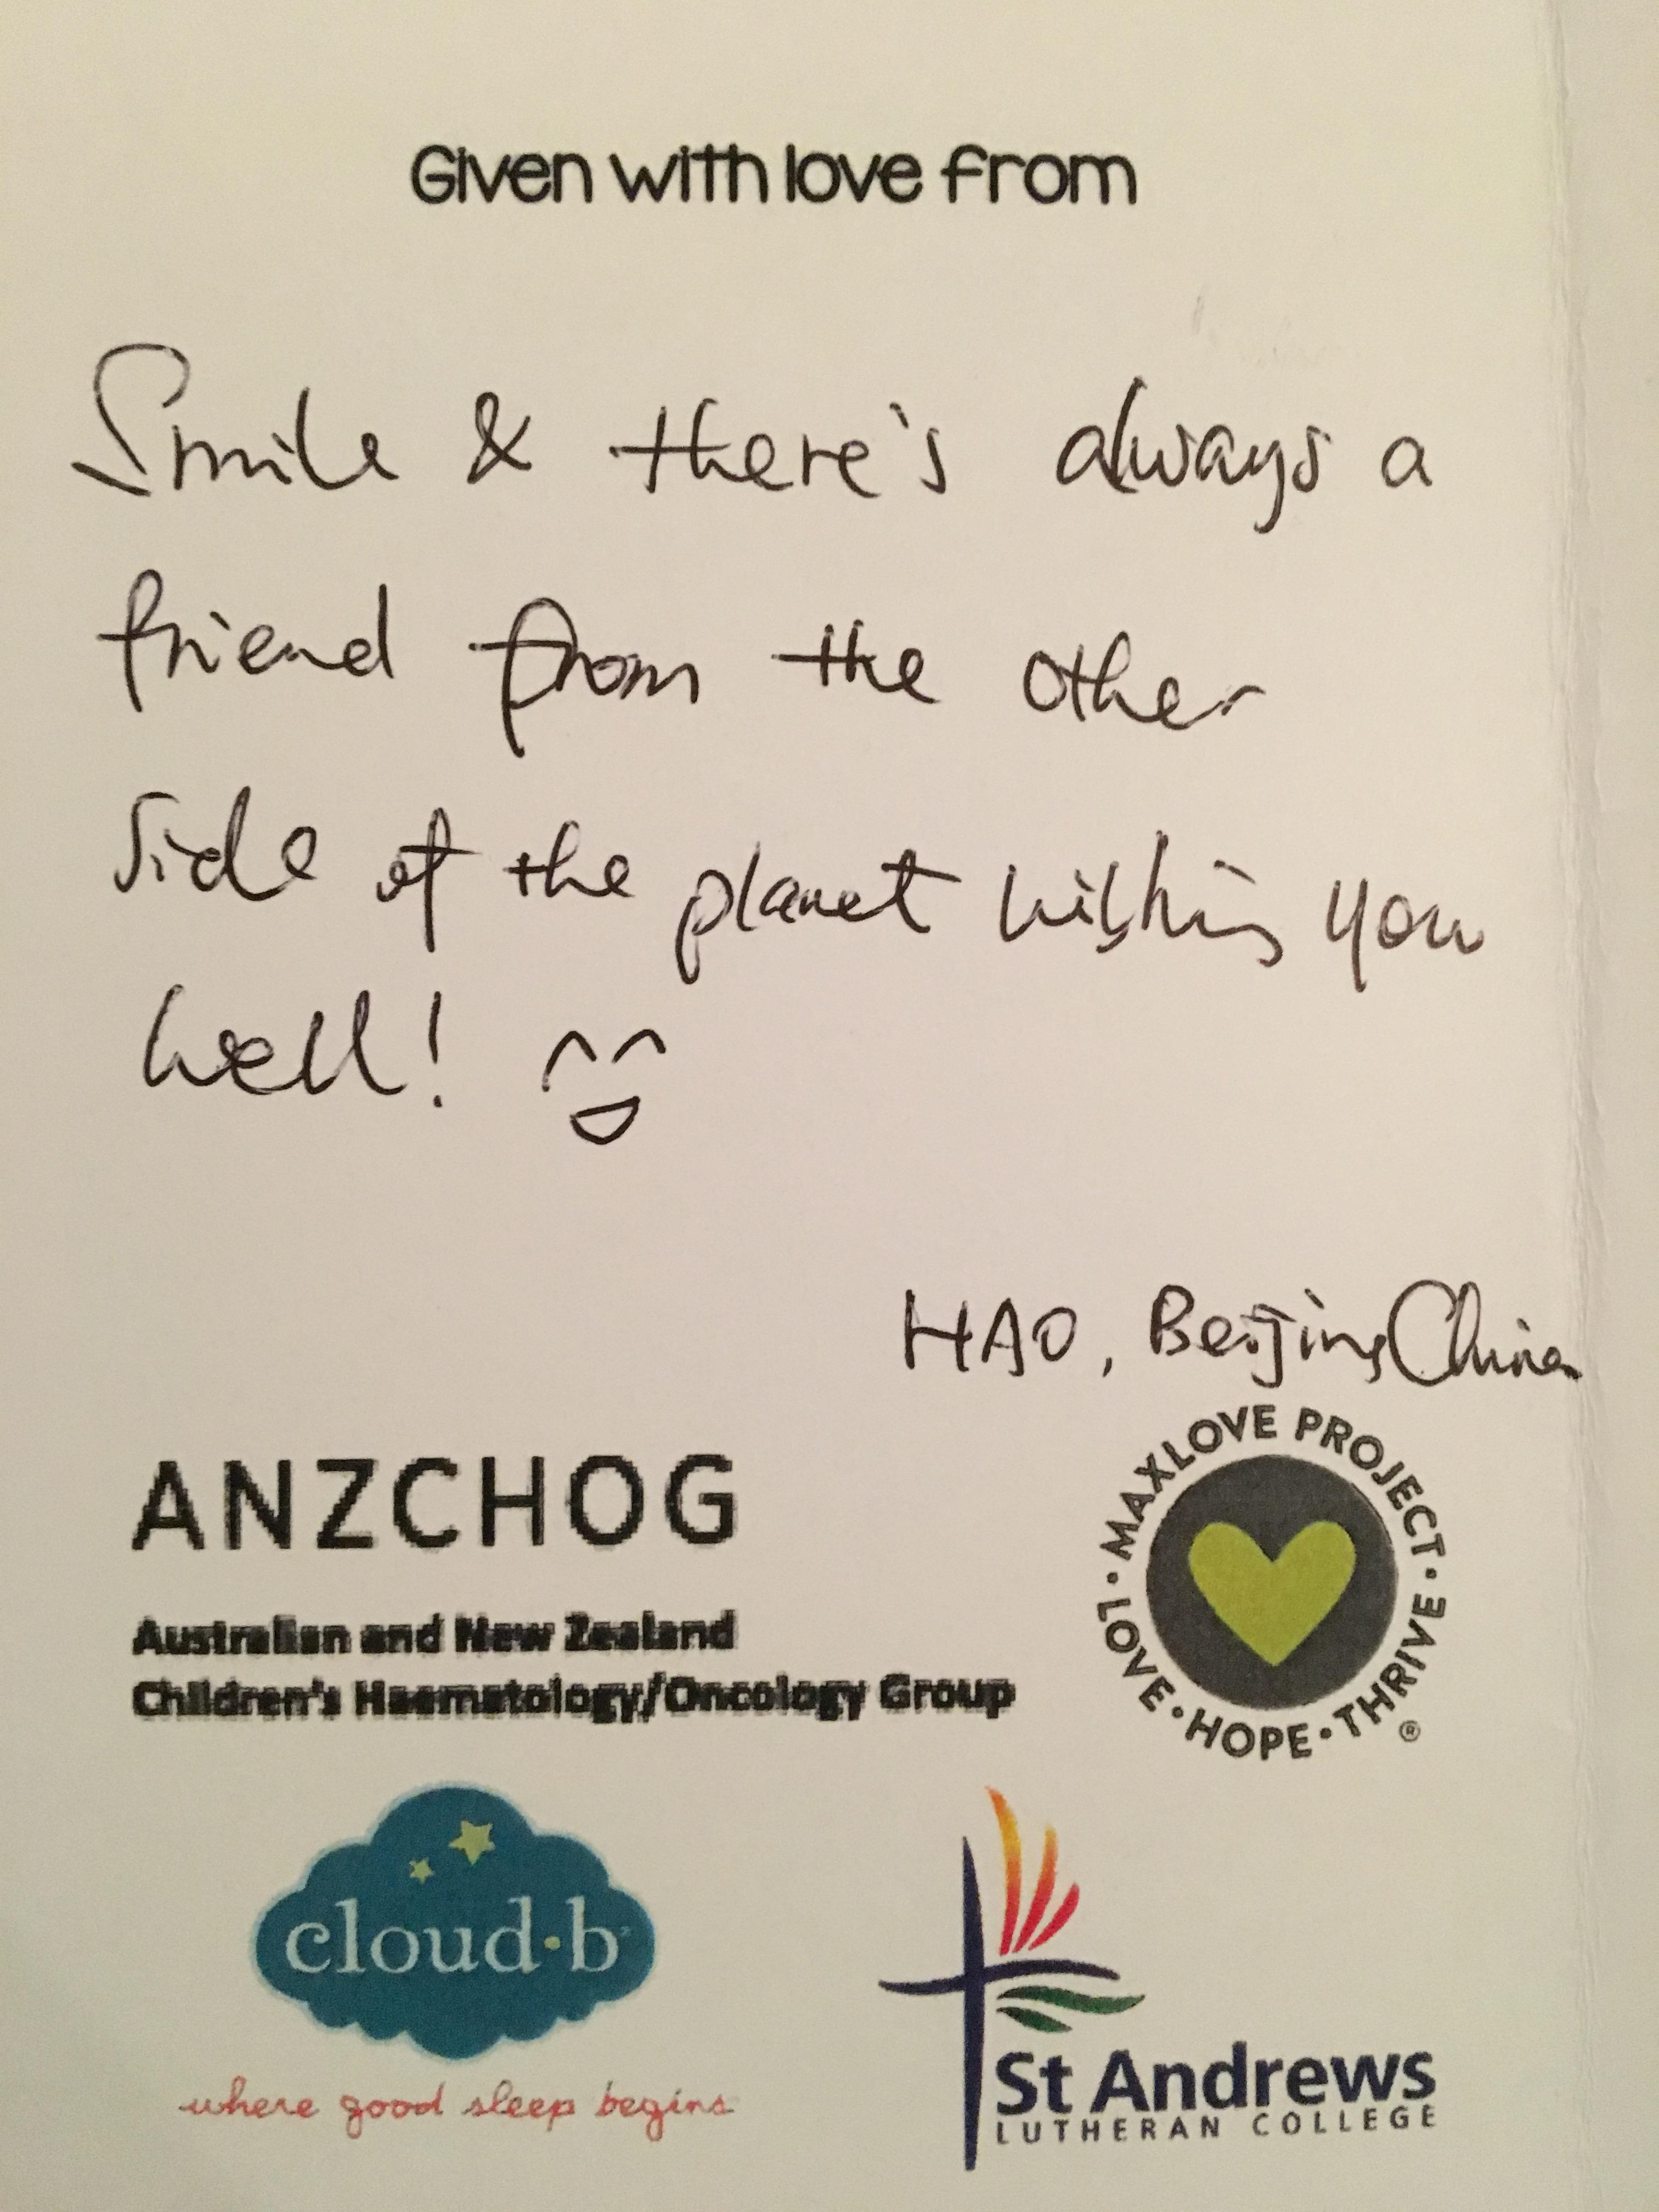 Given with love from
Smile & there's always a
friend from the other
side of the planet wishing you
well!
HAO, Beijing China
ANZCHOG
Australian and New Zealand
Children's Haematology/Oncology Group
MAXLOVE PROJECT · LOVE · HOPE · THRIVE ·
®
cloud·b
where good sleep begins
St Andrews
LUTHERAN COLLEGE